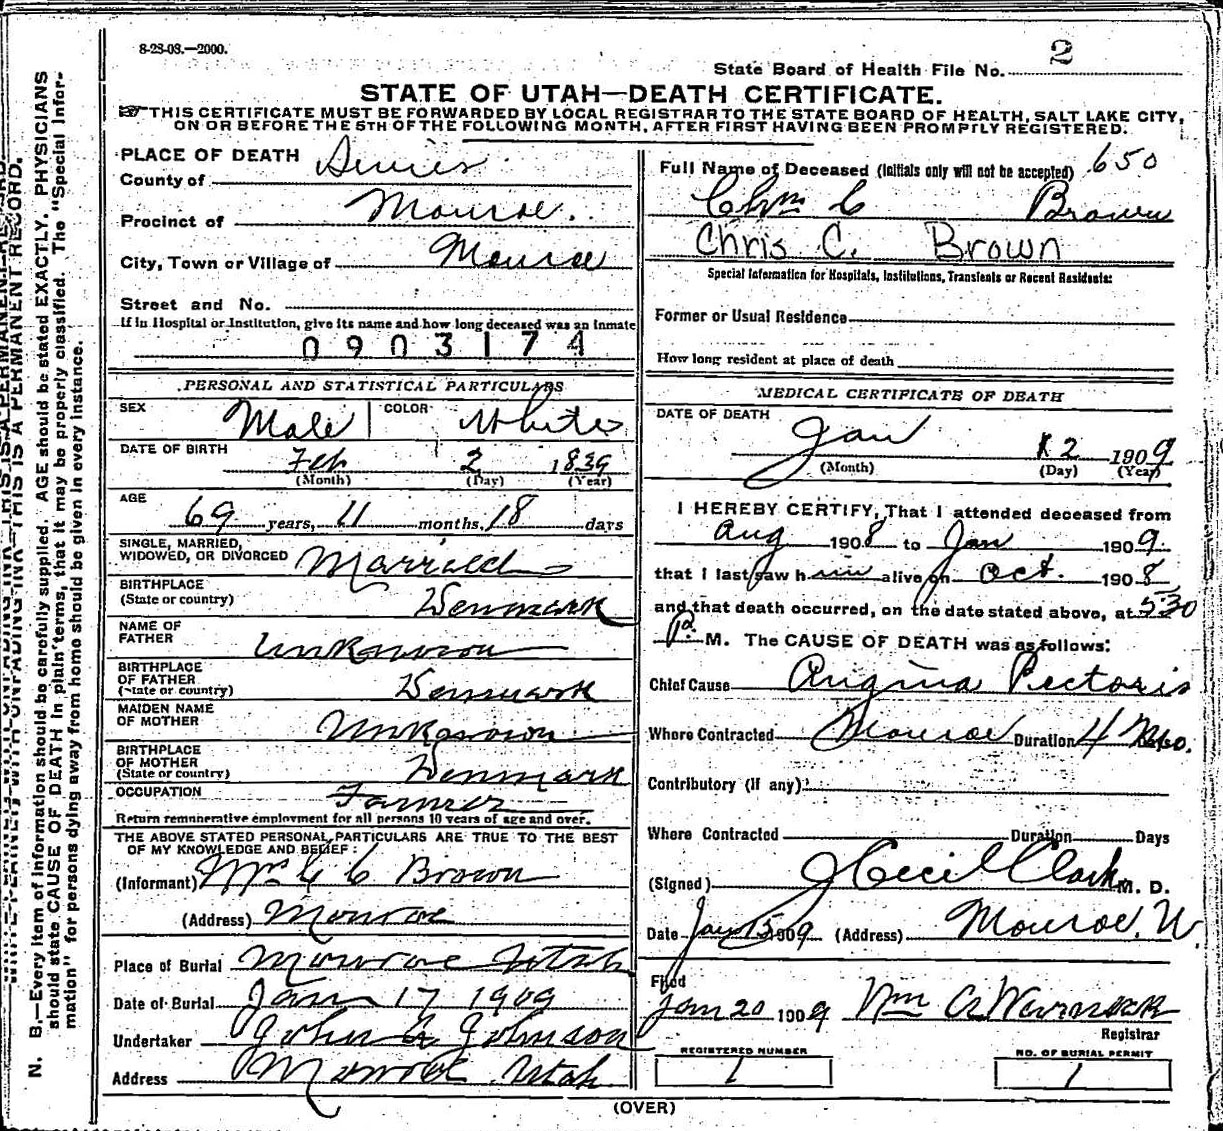 8-23-08.—2000.
2
State Board of Health File No.
STATE OF UTAH—DEATH CERTIFICATE.
THIS CERTIFICATE MUST BE FORWARDED BY LOCAL REGISTRAR TO THE STATE BOARD OF HEALTH, SALT LAKE CITY,
ON OR BEFORE THE 5TH OF THE FOLLOWING MONTH, AFTER FIRST HAVING BEEN PROMPTLY REGISTERED.
PLACE OF DEATH
County of Sevier
Precinct of Monroe.
City, Town or Village of Monroe
Street and No.
If in Hospital or Institution, give its name and how long deceased was an inmate
0903174
PERSONAL AND STATISTICAL PARTICULARS
SEX Male COLOR White
DATE OF BIRTH Feb 2 1839
(Month) (Day) (Year)
AGE
69 years, 11 months, 18 days
SINGLE, MARRIED,
WIDOWED, OR DIVORCED Married
BIRTHPLACE
(State or country) Denmark
NAME OF
FATHER Unknown
BIRTHPLACE
OF FATHER
(State or country) Denmark
MAIDEN NAME
OF MOTHER Unknown
BIRTHPLACE
OF MOTHER
(State or country) Denmark
OCCUPATION Farmer
Return remunerative employment for all persons 10 years of age and over.
THE ABOVE STATED PERSONAL PARTICULARS ARE TRUE TO THE BEST
OF MY KNOWLEDGE AND BELIEF:
(Informant) Mrs C C Brown
(Address) Monroe
Place of Burial Monroe Utah
Date of Burial Jan 17 1909
Undertaker John A Johnson
Address Monroe Utah
650
Full Name of Deceased (Initials only will not be accepted)
C Brown
Chris C. Brown
Special Information for Hospitals, Institutions, Transients or Recent Residents:
Former or Usual Residence
How long resident at place of death
MEDICAL CERTIFICATE OF DEATH
DATE OF DEATH
Jan 12 1909
(Month) (Day) (Year)
I HEREBY CERTIFY, That I attended deceased from
Aug 1908 to Jan 1909.
that I last saw him alive on Oct. 1908
and that death occurred, on the date stated above, at 530
P. M. The CAUSE OF DEATH was as follows:
Chief Cause Angina Pectoris
Where Contracted Monroe Duration 4 Mo.
Contributory (if any):
Where Contracted Duration Days
(Signed) J Cecil Clark M. D.
Date Jan 15 1909 (Address) Monroe, U.
Filed
Jan 20 1909 Wm A Warnock
Registrar
REGISTERED NUMBER
1
NO. OF BURIAL PERMIT
1
(OVER)
N. B.—Every item of information should be carefully supplied. AGE should be stated EXACTLY. PHYSICIANS
should state CAUSE OF DEATH in plain terms, that it may be properly classified. The "Special Infor-
mation" for persons dying away from home should be given in every instance.